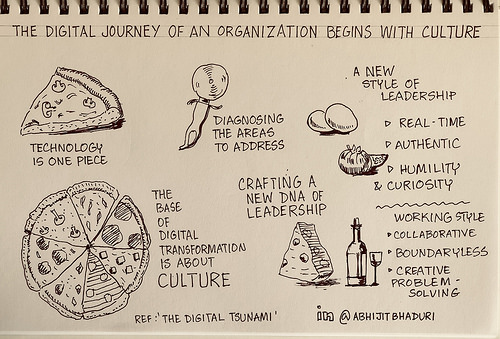 THE DIGITAL JOURNEY OF AN ORGANIZATION BEGINS WITH CULTURE
TECHNOLOGY
IS ONE PIECE
DIAGNOSING
THE AREAS
TO ADDRESS
A NEW
STYLE OF
LEADERSHIP
▷ REAL-TIME
▷ AUTHENTIC
▷ HUMILITY
& CURIOSITY
THE
BASE
OF
DIGITAL
TRANSFORMATION
IS ABOUT
CULTURE
CRAFTING A
NEW DNA OF
LEADERSHIP
WORKING STYLE
▸ COLLABORATIVE
▸ BOUNDARYLESS
▸ CREATIVE
PROBLEM-
SOLVING
REF: 'THE DIGITAL TSUNAMI'
in @ABHIJITBHADURI